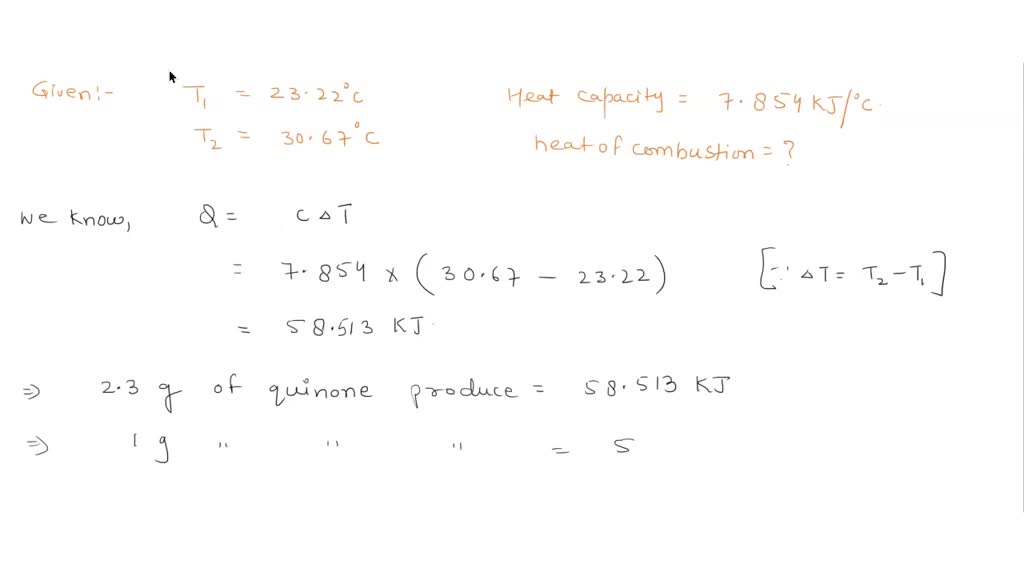 Given:- T₁ = 23.22°C Heat capacity = 7.854 KJ/°C.
T₂ = 30.67°C heat of combustion = ?
we know, Q = C ▵ T
= 7.854 × (30.67 - 23.22) [∵ ▵T = T₂ - T₁]
= 58.513 KJ.
⇒ 2.3 g of quinone produce = 58.513 KJ
⇒ 1 g " " " = 5